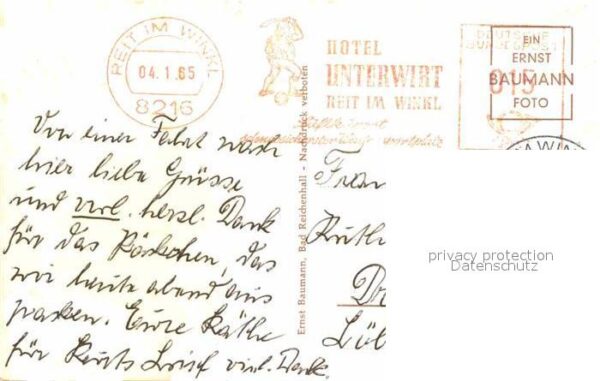 REIT IM WINKL
04.1.65
8216
HOTEL
UNTERWIRT
REIT IM WINKL
DEUTSCHE
BUNDESPOST
015
EIN
ERNST
BAUMANN
FOTO
Von einer Fahrt nach
hier liebe Grüsse
und verl. herzl. Dank
für das Päckchen, das
wir heute abend aus
packen. Eure Käthe
für Kurts Brief viel. Dank.
Ernst Baumann, Bad Reichenhall - Nachdruck verboten
Frau
Ruth
privacy protection
Datenschutz